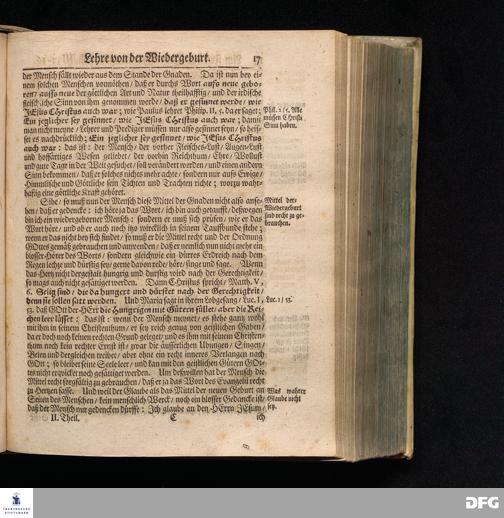 Lehre von der Wiedergeburt. 17
der Mensch fällt wieder aus dem Stande der Gnaden. Da ist nun bey ei-
nem solchen Menschen vonnöthen / daß er durchs Wort aufs neue gebo-
ren / auffs neue der göttlichen Art und Natur theilhafftig / und der irdische
fleischliche Sinn von ihm genommen werde / daß er gesinnet werde / wie
JEsus Christus auch war; wie Paulus lehret Philip. II, 5. da er saget:
Ein jeglicher sey gesinnet / wie JEsus Christus auch war; damit
man nicht meyne / Lehrer und Prediger müssen nur also gesinnet seyn / so heis-
set es nachdrücklich; Ein jeglicher sey gesinnet / wie JEsus Christus
auch war: das ist: der Mensch / der vorher Fleisches-Lust / Augen-Lust
und hoffärtiges Wesen geliebet / der vorhin Reichthum / Ehre / Wollust
und gute Tage in der Welt gesuchet / soll verändert werden / und einen andern
Sinn bekommen / daß er solches nicht mehr achte / sondern nur aufs Ewige /
Himmlische und Göttliche sein Tichten und Trachten richte; worzu wahr-
hafftig eine göttliche Krafft gehöret.
Phil. 2 / 5. Alle
müssen Christi
Sinn haben.
Sihe / so muß nun der Mensch diese Mittel der Gnaden nicht also anse-
hen / daß er gedencke: ich höre ja das Wort / ich bin auch getaufft / deßwegen
bin ich ein wiedergeborner Mensch: sondern er muß sich prüfen / wie er das
Wort höre / und ob er auch noch itzo würcklich in seinem Taufbunde stehe;
wenn er das nicht bey sich findet / so muß er die Mittel recht und der Ordnung
GOttes gemäß gebrauchen und anwenden / daß er nemlich nun nicht mehr ein
blosser Hörer des Worts / sondern gleichwie ein dürres Erdreich nach dem
Regen lechze und dürstig sey / gerne davon rede / höre / singe und sage. Wenn
das Hertz nicht dergestalt hungrig und durstig wird nach der Gerechtigkeit /
so mags auch nicht gesättiget werden. Dann Christus spricht / Matth. V,
6. Selig sind / die da hungert und dürstet nach der Gerechtigkeit /
denn sie sollen satt werden. Und Maria sagt in ihrem Lobgesang / Luc. I,
53. daß GOtt der HErr die Hungrigen mit Gütern fülle / aber die Rei-
chen leer lässet: das ist: wenn der Mensch meynet / es stehe gantz wohl
mit ihm in seinem Christenthum / er sey reich genug von geistlichen Gaben /
da er doch noch keinen rechten Grund geleget / und es ihm mit seinem Christen-
thum noch kein rechter Ernst ist / zwar die äusserlichen Übungen / Singen /
Beten und dergleichen treibet / aber ohne ein recht inneres Verlangen nach
GOtt; so bleibet seine Seele leer / und kan mit den geistlichen Gütern GOt-
tes nicht erquicket noch gesättiget werden. Um deßwillen hat der Mensch die
Mittel recht sorgfältig zu gebrauchen / daß er ja das Wort des Evangelii recht
zu Hertzen fasse. Und weil der Glaube als das Mittel der neuen Geburt an
Seiten des Menschen / kein menschlich Werck / noch ein blosser Gedancke ist /
daß der Mensch nur gedencken dürffe: Ich glaube an den HErrn JEsum /
Mittel der
Wiedergeburt
sind recht zu ge-
brauchen.
Luc. 1 / 53.
Was wahrer
Glaube nicht
sey.
II. Theil. C ich
FRANCKESCHE
STIFTUNGEN
DFG